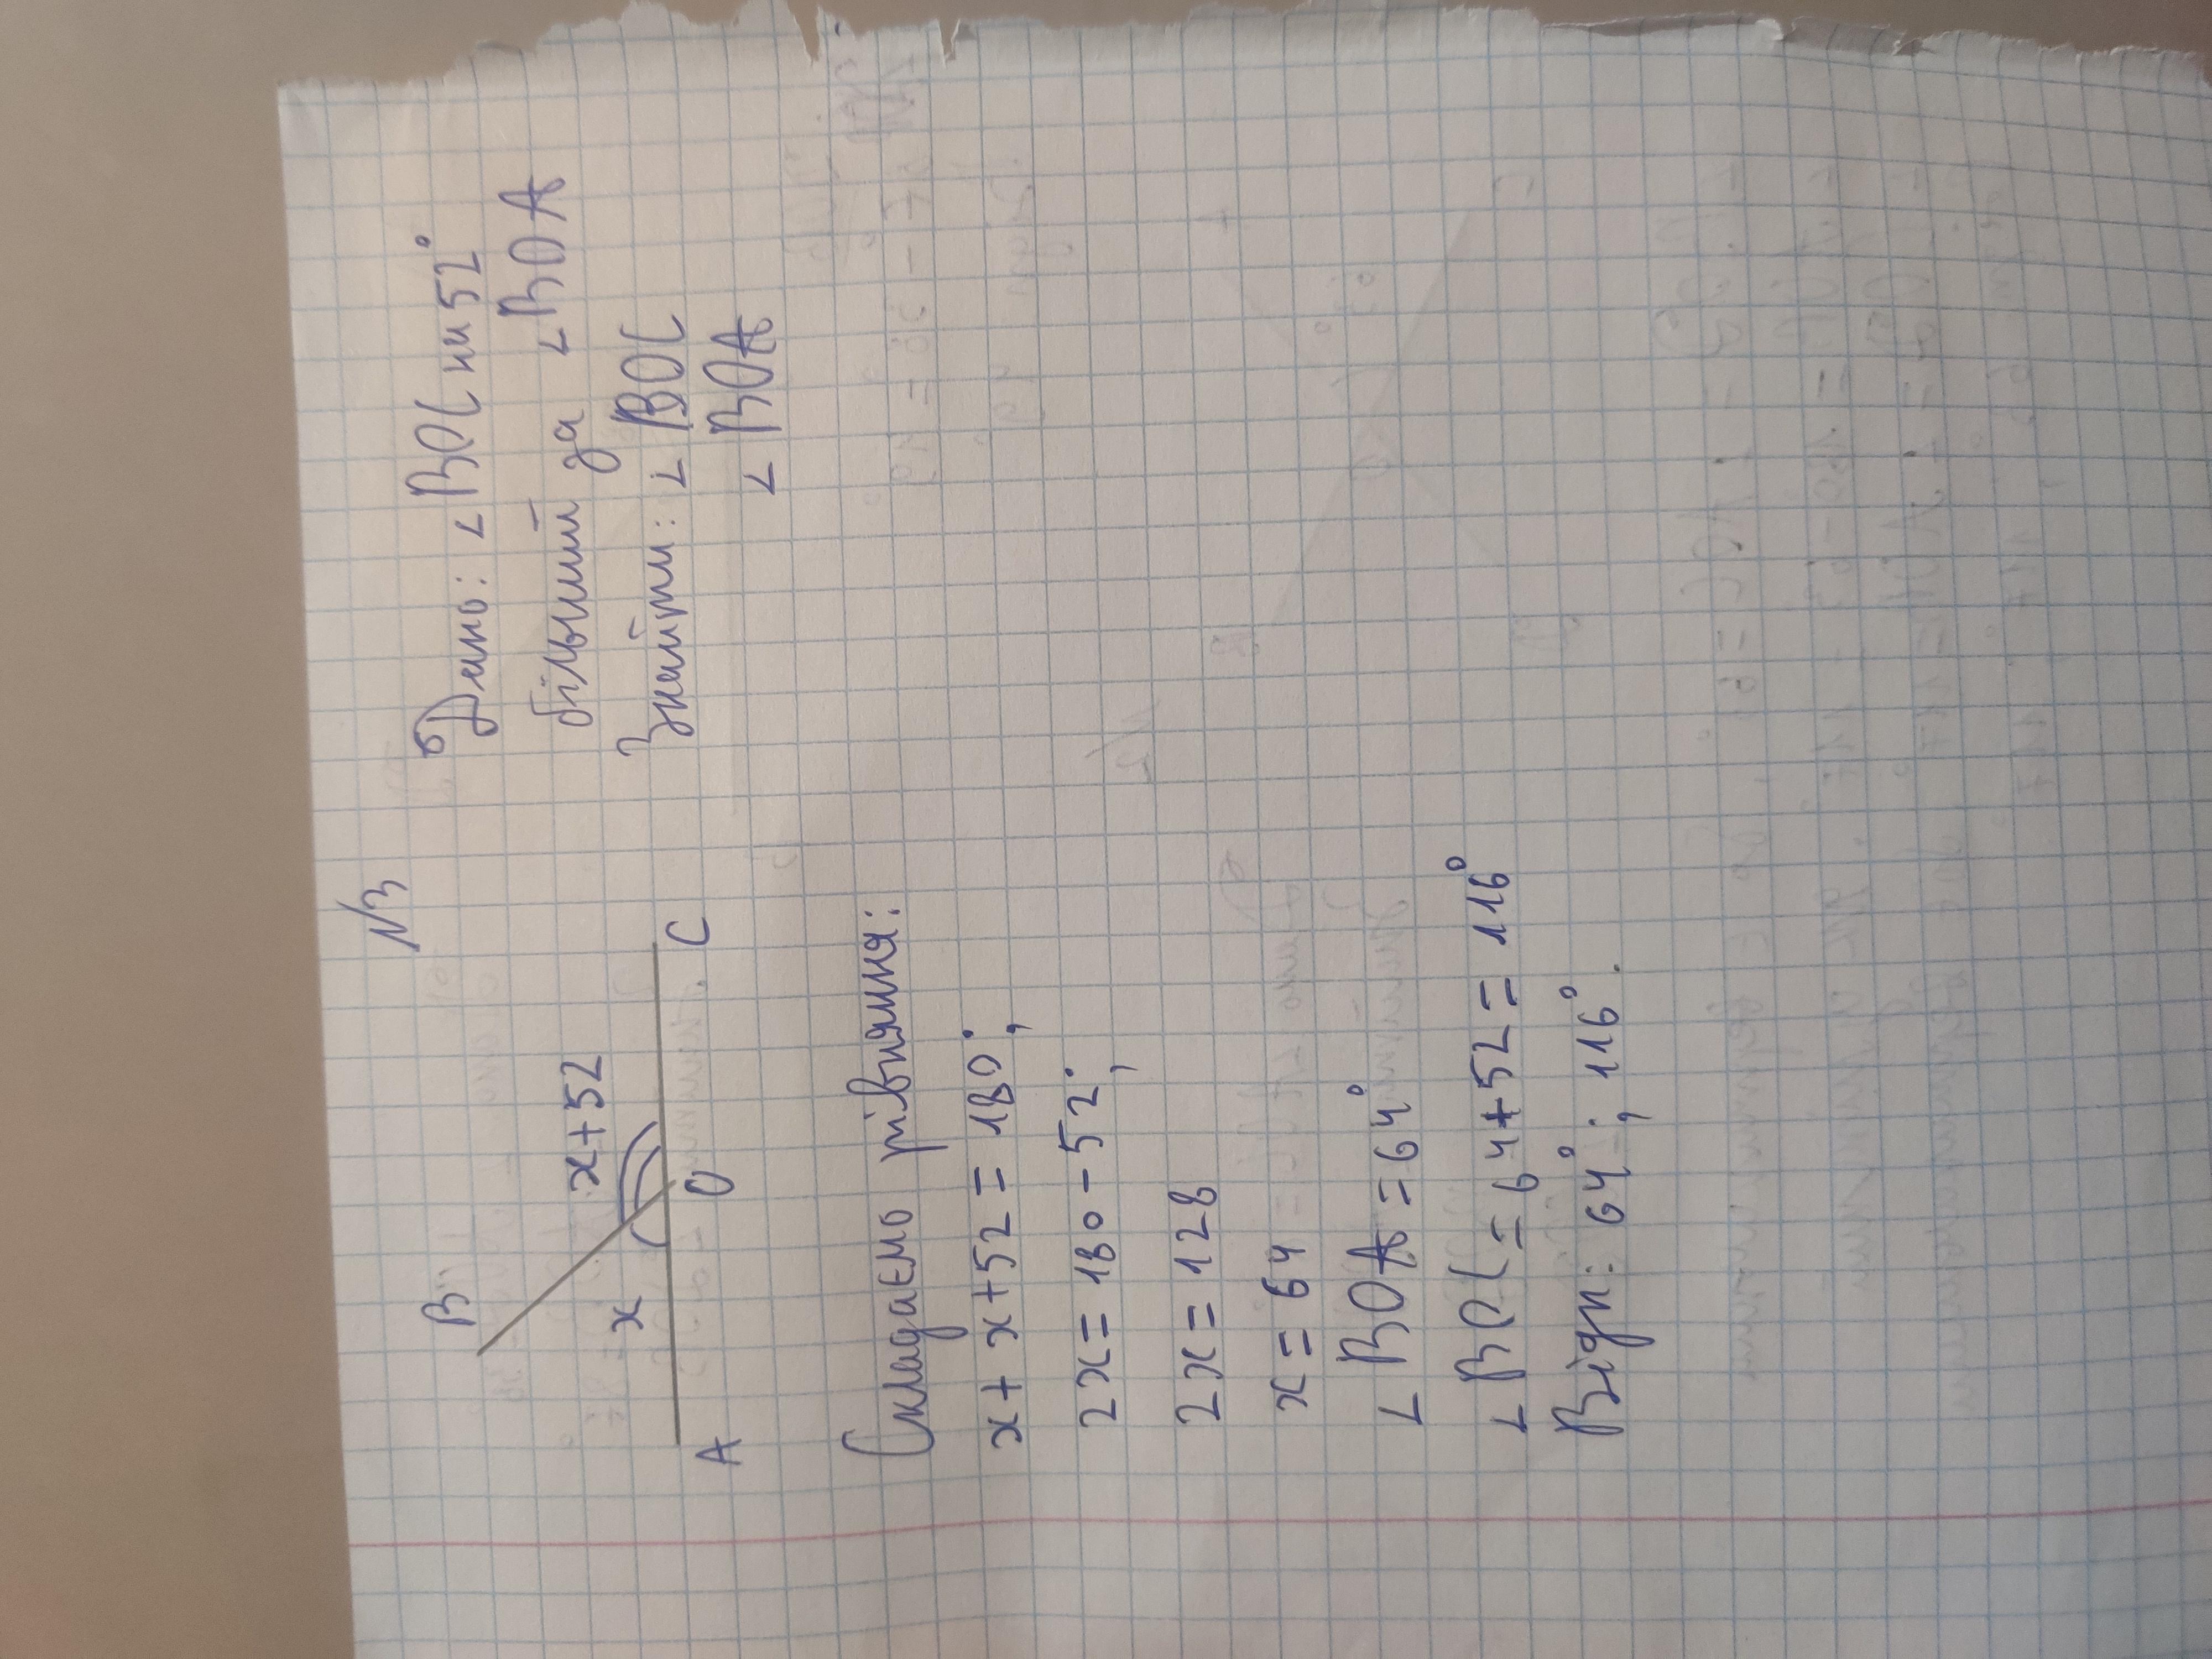 №3
Дано: ∠BOC на 52°
більший за ∠BOA
Знайти: ∠BOC
∠BOA
B
x+52
x
A O C
Складаємо рівняння:
x+x+52=180°;
2x=180-52°;
2x=128
x=64
∠BOA=64°
∠BOC=64+52=116°
Відп: 64°; 116°.